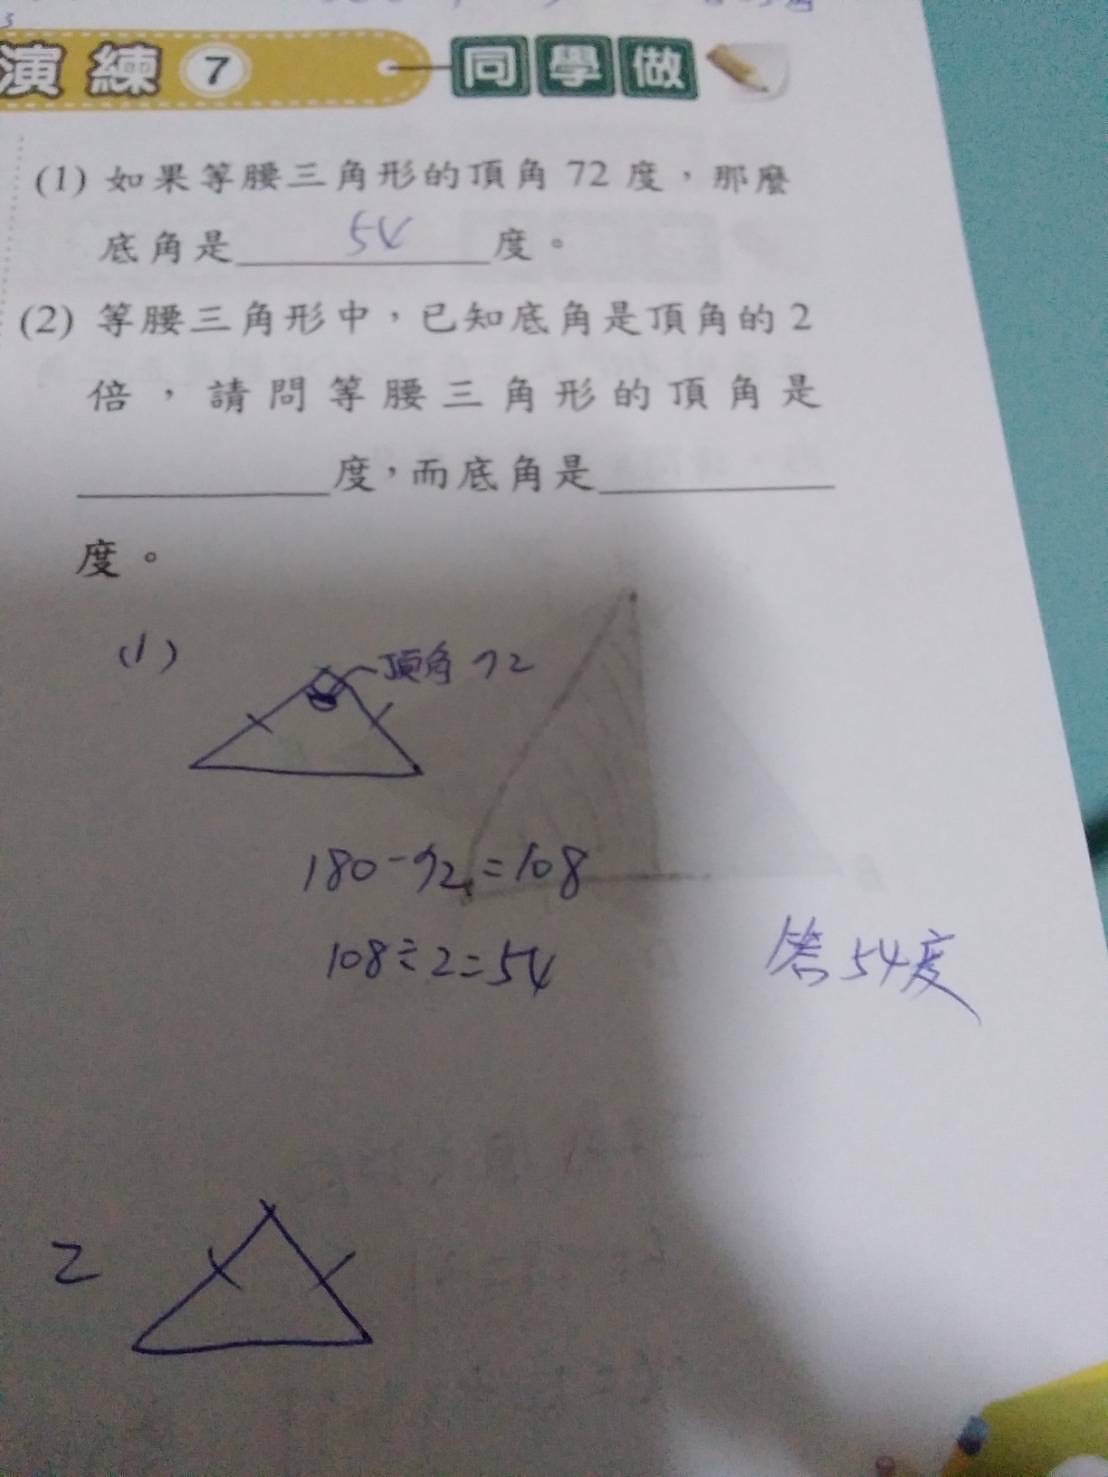 演練 7 同學做
(1) 如果等腰三角形的頂角 72 度，那麼
底角是 54 度。
(2) 等腰三角形中，已知底角是頂角的 2
倍，請問等腰三角形的頂角是
度，而底角是
度。
(1)
頂角 72
180-72=108
108÷2=54
答 54度
2